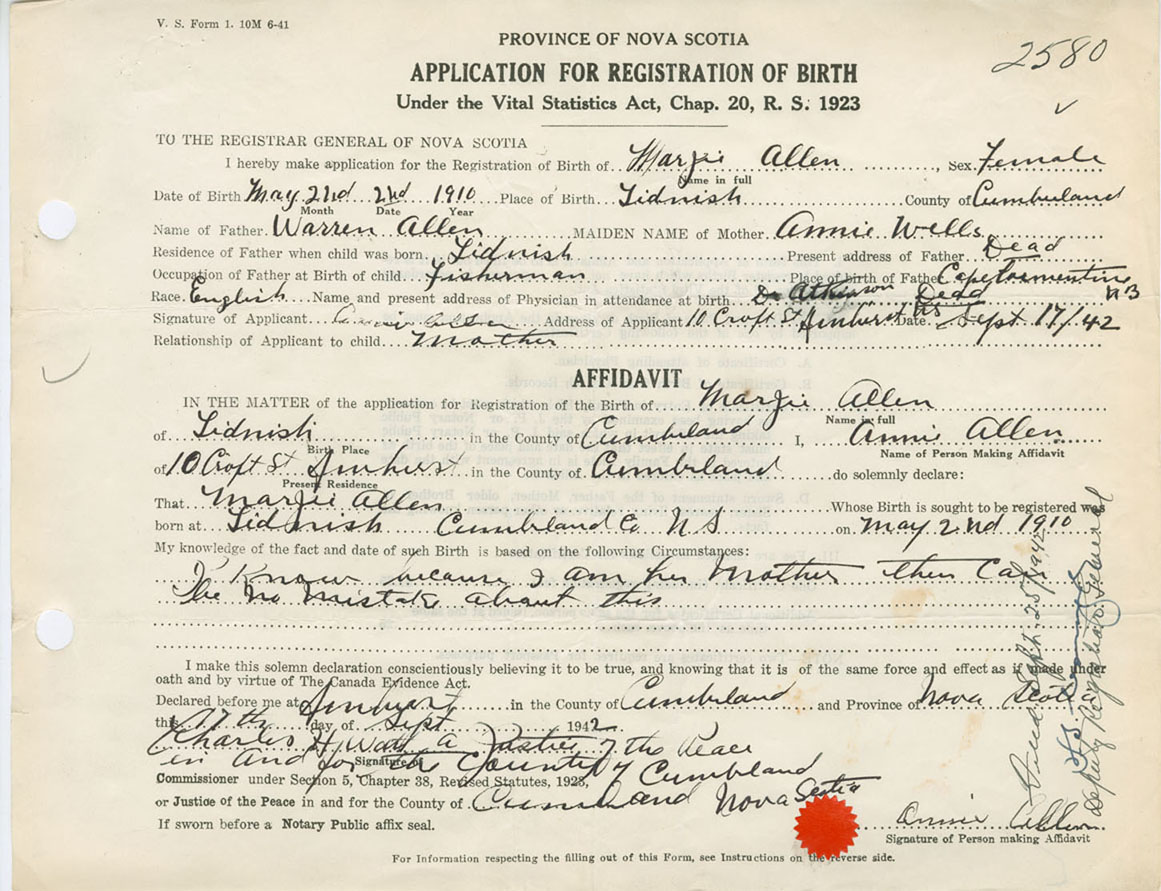 V. S. Form 1. 10M 6-41
2580
PROVINCE OF NOVA SCOTIA
APPLICATION FOR REGISTRATION OF BIRTH
Under the Vital Statistics Act, Chap. 20, R. S. 1923
TO THE REGISTRAR GENERAL OF NOVA SCOTIA
I hereby make application for the Registration of Birth of Margie Allen, Sex. Female
Name in full
Date of Birth May 2nd 2nd 1910 Place of Birth Tidnish County of Cumberland
Month Date Year
Name of Father Warren Allen MAIDEN NAME of Mother Annie Wells
Residence of Father when child was born Tidnish Present address of Father Dead
Occupation of Father at Birth of child Fisherman Place of birth of Father Cape Tormentine
Race English Name and present address of Physician in attendance at birth Dr Atkinson Dead NB
Signature of Applicant Annie Allen Address of Applicant 10 Croft St Amherst NS Date Sept 17/42
Relationship of Applicant to child Mother
AFFIDAVIT
IN THE MATTER of the application for Registration of the Birth of Margie Allen
Name in full
of Tidnish in the County of Cumbrland I, Annie Allen
Birth Place Name of Person Making Affidavit
of 10 Croft St Amherst in the County of Cumbrland do solemnly declare:
Present Residence
That Margie Allen Whose Birth is sought to be registered was
born at Tidnish Cumbrland Co NS on May 2nd 1910
My knowledge of the fact and date of such Birth is based on the following Circumstances:
I Know because I am her Mother then Can
Be No Mistake about this
I make this solemn declaration conscientiously believing it to be true, and knowing that it is of the same force and effect as if made under
oath and by virtue of The Canada Evidence Act.
Declared before me at Amherst in the County of Cumbrland and Province of Nova Scotia
this 17th day of Sept 1942
Charles H a Justice of the Peace
in and for the County of Cumbrland
Signature of
Commissioner under Section 5, Chapter 38, Revised Statutes, 1923,
or Justice of the Peace in and for the County of Cumbrland Nova Scotia
If sworn before a Notary Public affix seal.
Annie Allen
Signature of Person making Affidavit
For Information respecting the filling out of this Form, see Instructions on the reverse side.
Filed Sept. 25, 1942
Deputy Registrar General